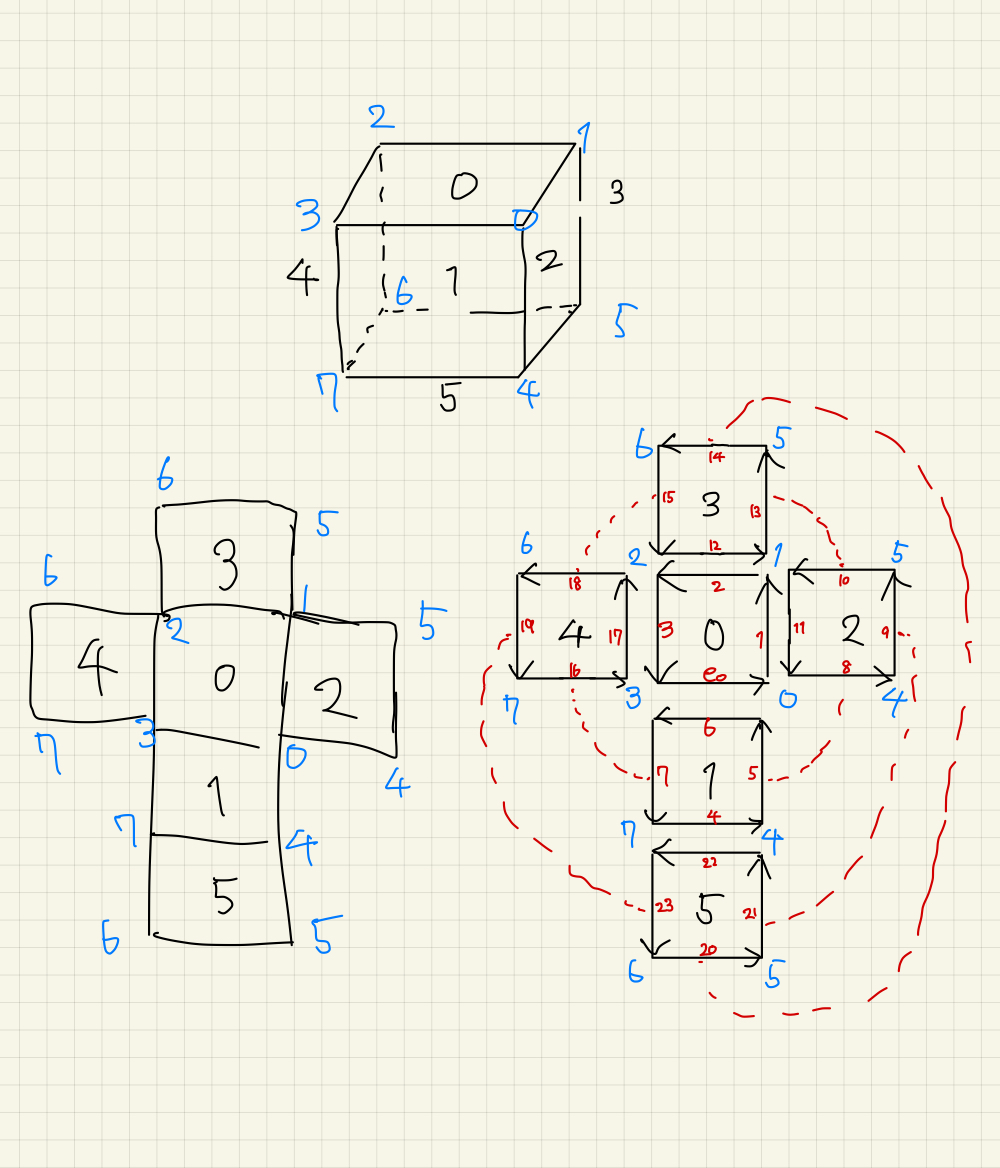 2 1
0
3 0
3
2
4 1
6
5
7 4
5
6
5
3
6
1
5
2
4 0
2
3
7
0
4
1
7
4
5
6
5
6 5
14
15 3 13
12
6 2 1 5
18 2 10
19 4 17 3 0 1 11 2 9
16 e0 8
7 3 0 4
6
7 1 5
4
7 4
22
23 5 21
20
6 5